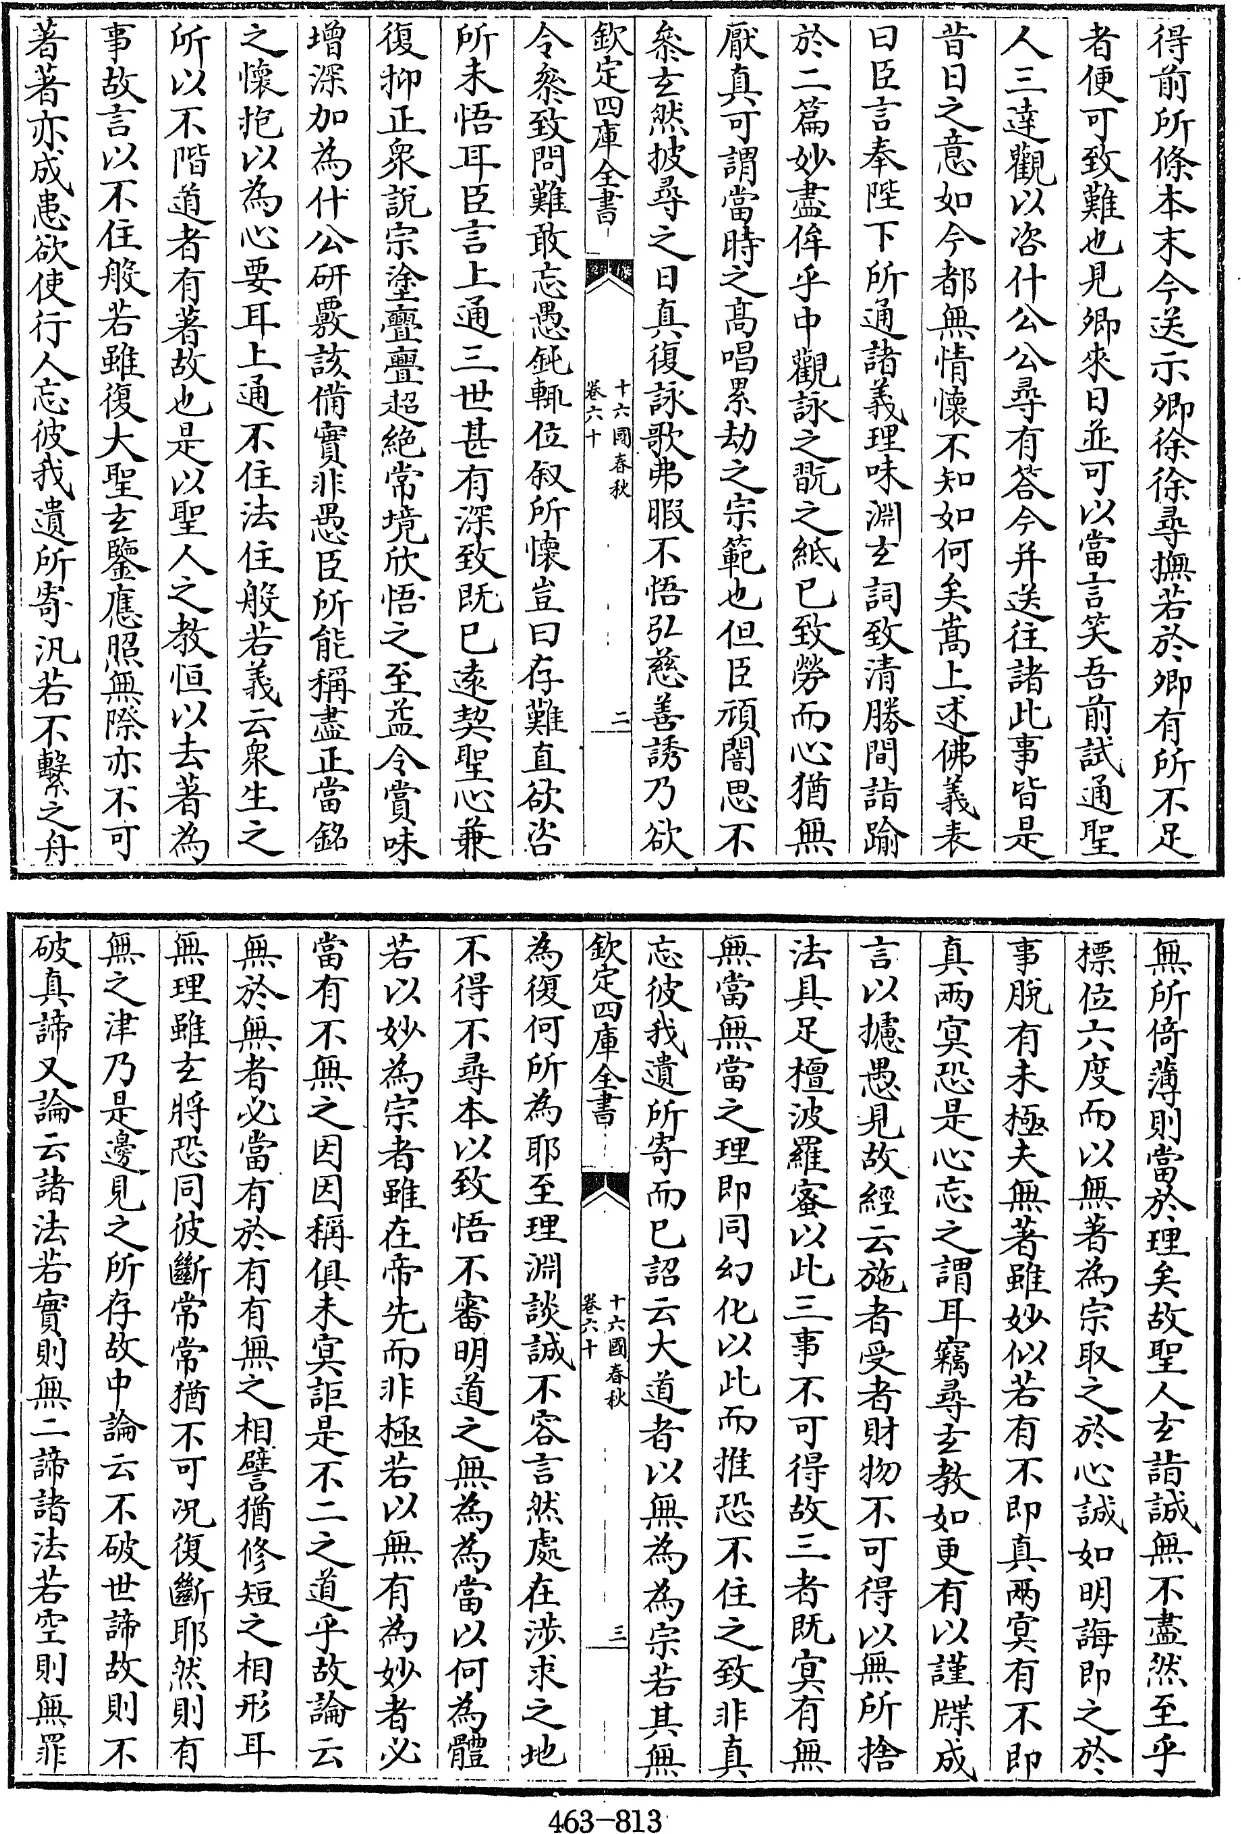 得前所條本末今送示卿徐徐尋撫若於卿有所不足
者便可致難也見卿來日並可以當言笑吾前試通聖
人三達觀以咨什公公尋有答今并送往諸此事皆是
昔日之意如今都無情懷不知如何矣嵩上述佛義表
曰臣言奉陛下所通諸義理味淵玄詞致清勝間詣踰
於二篇妙盡侔乎中觀詠之翫之紙已致勞而心猶無
厭真可謂當時之高唱累劫之宗範也但臣頑闇思不
叅玄然披尋之日真復詠歌弗暇不悟弘慈善誘乃欲
欽定四庫全書
十六國春秋
卷六十
二
令叅致問難敢忘愚鈍輒位叙所懷豈曰存難直欲咨
所未悟耳臣言上通三世甚有深致既已遠契聖心兼
復抑正衆說宗塗亹亹超絶常境欣悟之至益令賞味
增深加為什公研覈該備實非愚臣所能稱盡正當銘
之懷抱以為心要耳上通不住法住般若義云衆生之
所以不階道者有著故也是以聖人之教恒以去著為
事故言以不住般若雖復大聖玄鑒應照無際亦不可
著著亦成患欲使行人忘彼我遺所寄汎若不繫之舟
無所倚薄則當於理矣故聖人玄詣誠無不盡然至乎
標位六度而以無著為宗取之於心誠如明誨即之於
事脫有未極夫無著雖妙似若有不即真兩冥有不即
真兩冥恐是心忘之謂耳竊尋玄教如更有以謹牒成
言以攄愚見故經云施者受者財物不可得以無所捨
法具足檀波羅蜜以此三事不可得故三者既冥有無
無當無當之理即同幻化以此而推恐不住之致非真
忘彼我遺所寄而已詔云大道者以無為為宗若其無
欽定四庫全書
十六國春秋
卷六十
三
為復何所為耶至理淵談誠不容言然處在涉求之地
不得不尋本以致悟不審明道之無為為當以何為體
若以妙為宗者雖在帝先而非極若以無有為妙者必
當有不無之因因稱俱未冥詎是不二之道乎故論云
無於無者必當有於有有無之相譬猶修短之相形耳
無理雖玄將恐同彼斷常常猶不可况復斷耶然則有
無之津乃是邊見之所存故中論云不破世諦故則不
破真諦又論云諸法若實則無二諦諸法若空則無罪
463-813